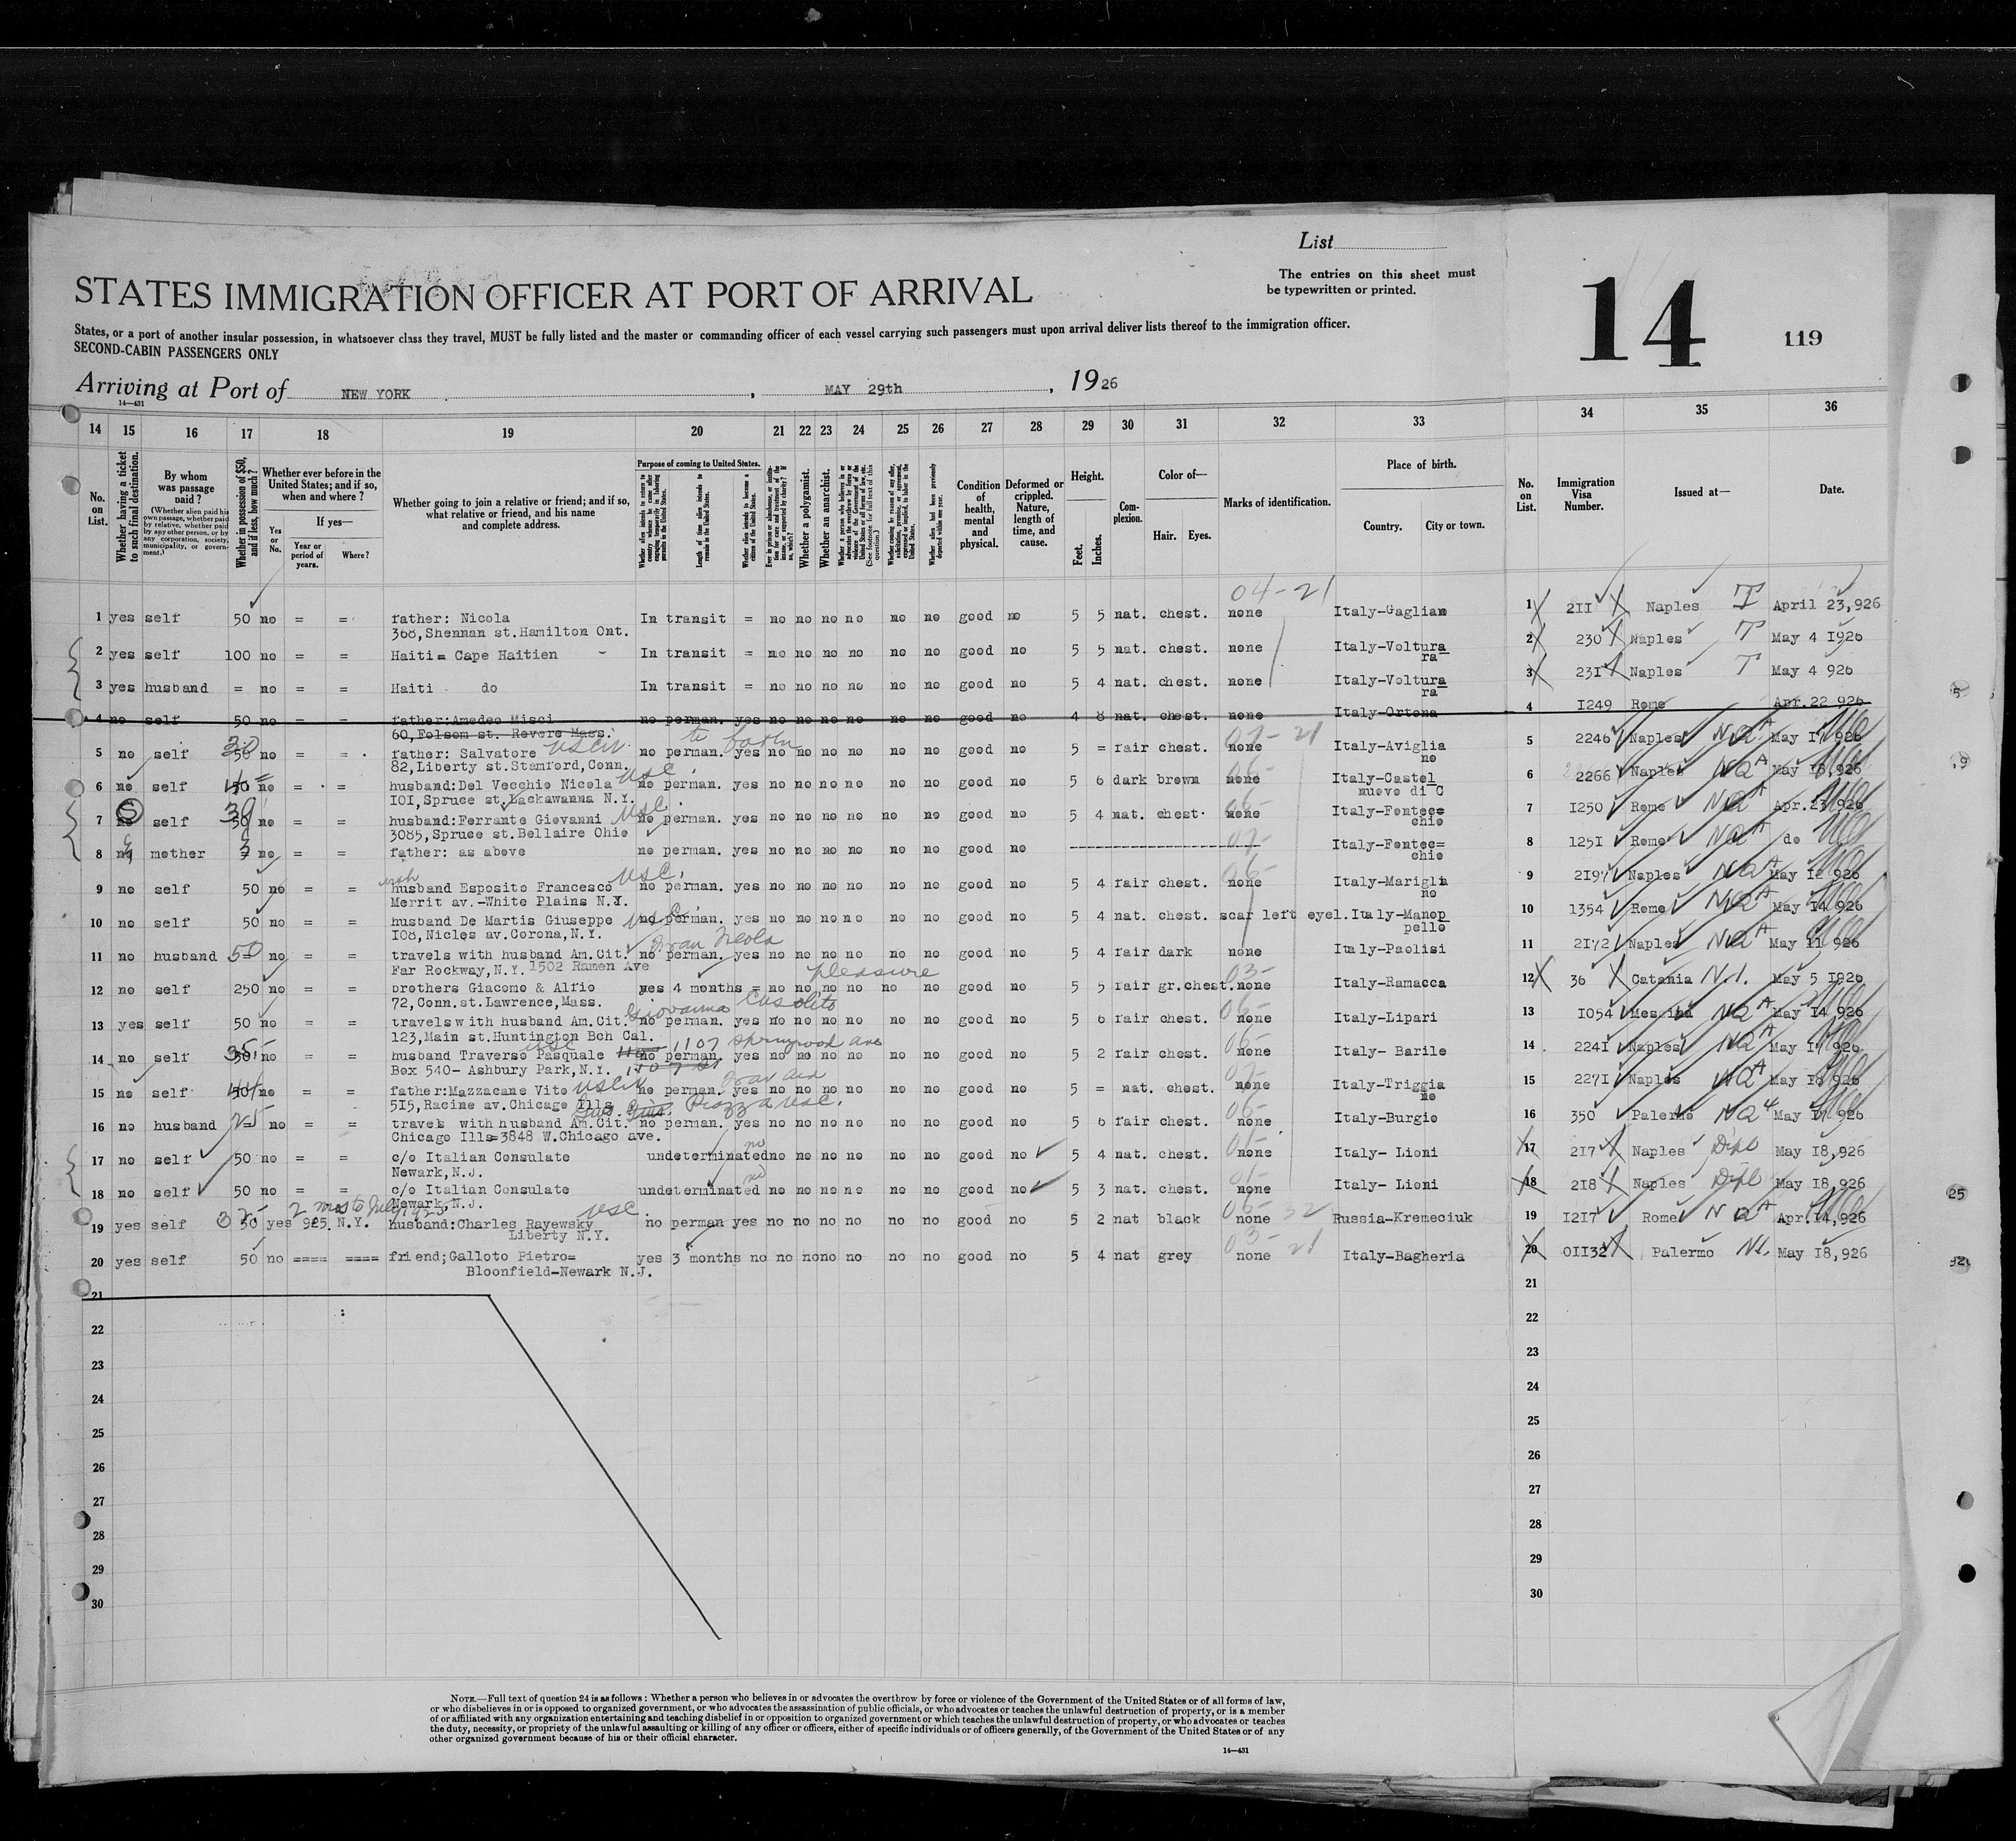 List
The entries on this sheet must
be typewritten or printed.
14
119
STATES IMMIGRATION OFFICER AT PORT OF ARRIVAL
States, or a port of another insular possession, in whatsoever class they travel, MUST be fully listed and the master or commanding officer of each vessel carrying such passengers must upon arrival deliver lists thereof to the immigration officer.
SECOND-CABIN PASSENGERS ONLY
Arriving at Port of NEW YORK, MAY 29th, 1926
14—431
14 15 16 17 18 19 20 21 22 23 24 25 26 27 28 29 30 31 32 33 34 35 36
No. on List.
Whether having a ticket to such final destination.
By whom was passage paid?
(Whether alien paid his own passage, whether paid by relative, whether paid by any other person, or by any corporation, society, municipality, or government.)
Whether in possession of $50, and if less, how much?
Whether ever before in the United States; and if so, when and where?
If yes—
Yes or No.
Year or period of years.
Where?
Whether going to join a relative or friend; and if so, what relative or friend, and his name and complete address.
Purpose of coming to United States.
Length of time alien intends to remain in the United States.
Whether alien intends to become a citizen of the United States.
Whether a polygamist.
Whether an anarchist.
Condition of health, mental and physical.
Deformed or crippled. Nature, length of time, and cause.
Height.
Feet.
Inches.
Complexion.
Color of—
Hair. Eyes.
Marks of identification.
Place of birth.
Country. City or town.
No. on List.
Immigration Visa Number.
Issued at—
Date.
04-21
1 yes self 50 no = = father: Nicola In transit = no no no no no no good no 5 5 nat. chest. none Italy-Gagliano 1 211 Naples T April 23,926
368,Shennan st.Hamilton Ont.
2 yes self 100 no = = Haiti= Cape Haitien - In transit = no no no no no no good no 5 5 nat. chest. none Italy-Voltura 2 230 Naples T May 4 1926
ra
3 yes husband = no = = Haiti do In transit = no no no no no no good no 5 4 nat. chest. none Italy-Voltura 3 231 Naples T May 4 926
ra
4 no self 50 no = = father:Amedeo Misci no perman. yes no no no no no no good no 4 8 nat. chest. none Italy-Ortona 4 1249 Rome Apr.22 926
60,Folsom st. Revere Mass.
5 no self 50 no = = father: Salvatore no perman. yes no no no no no no good no 5 = fair chest. none Italy-Aviglia 5 2246 Naples NQA May 17 926
82,Liberty st.Stamford,Conn. no
6 no self no = = husband:Del Vecchio Nicola usc. no perman. yes no no no no no no good no 5 6 dark brown none Italy-Castel 6 2266 Naples NQA May 18,926
101,Spruce st.Lackawanna N.Y. nuovo di C
7 no self 50 no = = husband:Ferrante Giovanni usc. no perman. yes no no no no no no good no 5 4 nat. chest. none Italy-Fontec= 7 1250 Rome NQA Apr.23,926
3085,Spruce st.Bellaire Ohio chio
8 mother no = = father: as above no perman. yes no no no no no no good no Italy-Fontec= 8 1251 Rome NQA do
chio
9 no self 50 no = = husband Esposito Francesco usc. no perman. yes no no no no no no good no 5 4 fair chest. none Italy-Marigli 9 2197 Naples NQA May 12 926
Merrit av.-White Plains N.Y. no
10 no self 50 no = = husband De Martis Giuseppe no perman. yes no no no no no no good no 5 4 nat. chest. scar left eyel. Italy-Manop 10 1354 Rome NQA May 14 926
108,Nicles av.Corona,N.Y. pello
11 no husband 50 no = = travels with husband Am.Cit. no perman. yes no no no no no no good no 5 4 fair dark none Italy-Paolisi 11 2172 Naples NQA May 11 926
Far Rockway,N.Y. 1502 Ramen Ave
pleasure
12 no self 250 no = = brothers Giacomo & Alfio yes 4 months = no no no no no no good no 5 5 fair gr.chest. none Italy-Ramacca 12 36 Catania N.I. May 5 1926
72,Conn.st.Lawrence,Mass. Giovanna
13 yes self 50 no = = travels with husband Am.Cit. no perman. yes no no no no no no good no 5 6 fair chest. none Italy-Lipari 13 1054 Messina NQA May 14 926
123,Main st.Huntington Bch Cal.
usc 1107 Springwood Ave
14 no self 50 no = = husband Traverso Pasquale no perman. yes no no no no no no good no 5 2 fair chest. none Italy- Barile 14 2241 Naples NQA May 17 926
Box 540- Ashbury Park,N.Y.
15 no self no = = father:Mazzacane Vito no perman. yes no no no no no no good no 5 = nat. chest. none Italy-Triggia 15 2271 Naples NQA May 18 926
515,Racine av.Chicago Ills Piazza usc. no
16 no husband 25 no = = travels with husband Am.Cit. no perman. yes no no no no no no good no 5 6 fair chest. none Italy-Burgio 16 350 Palermo NQ May 17 926
Chicago Ills=3848 W.Chicago ave.
17 no self 50 no = = c/o Italian Consulate undeterminated no no no no no no no good no 5 4 nat. chest. none Italy- Lioni 17 217 Naples Dipl May 18,926
Newark,N.J.
18 no self 50 no = = c/o Italian Consulate undeterminated no no no no no no no good no 5 3 nat. chest. none Italy- Lioni 18 218 Naples Dipl May 18,926
Newark,N.J.
19 yes self 50 yes 925. N.Y. husband:Charles Rayewsky usc. no perman yes no no no no no no good no 5 2 nat black none Russia-Kremeciuk 19 1217 Rome NQA Apr.14,926
Liberty N.Y.
20 yes self 50 no ==== ==== friend;Galloto Pietro= yes 3 months no no no no no no no good no 5 4 nat grey none Italy-Bagheria 20 01132 Palermo NI. May 18,926
Bloonfield-Newark N.J.
21 21
22 22
23 23
24 24
25 25
26 26
27 27
28 28
29 29
30 30
NOTE.—Full text of question 24 is as follows: Whether a person who believes in or advocates the overthrow by force or violence of the Government of the United States or of all forms of law,
or who disbelieves in or is opposed to organized government, or who advocates the assassination of public officials, or who advocates or teaches the unlawful destruction of property, or is a member
of or affiliated with any organization entertaining and teaching disbelief in or opposition to organized government or which teaches the unlawful destruction of property, or who advocates or teaches
the duty, necessity, or propriety of the unlawful assaulting or killing of any officer or officers, either of specific individuals or of officers generally, of the Government of the United States or of any
other organized government because of his or their official character.
14—431